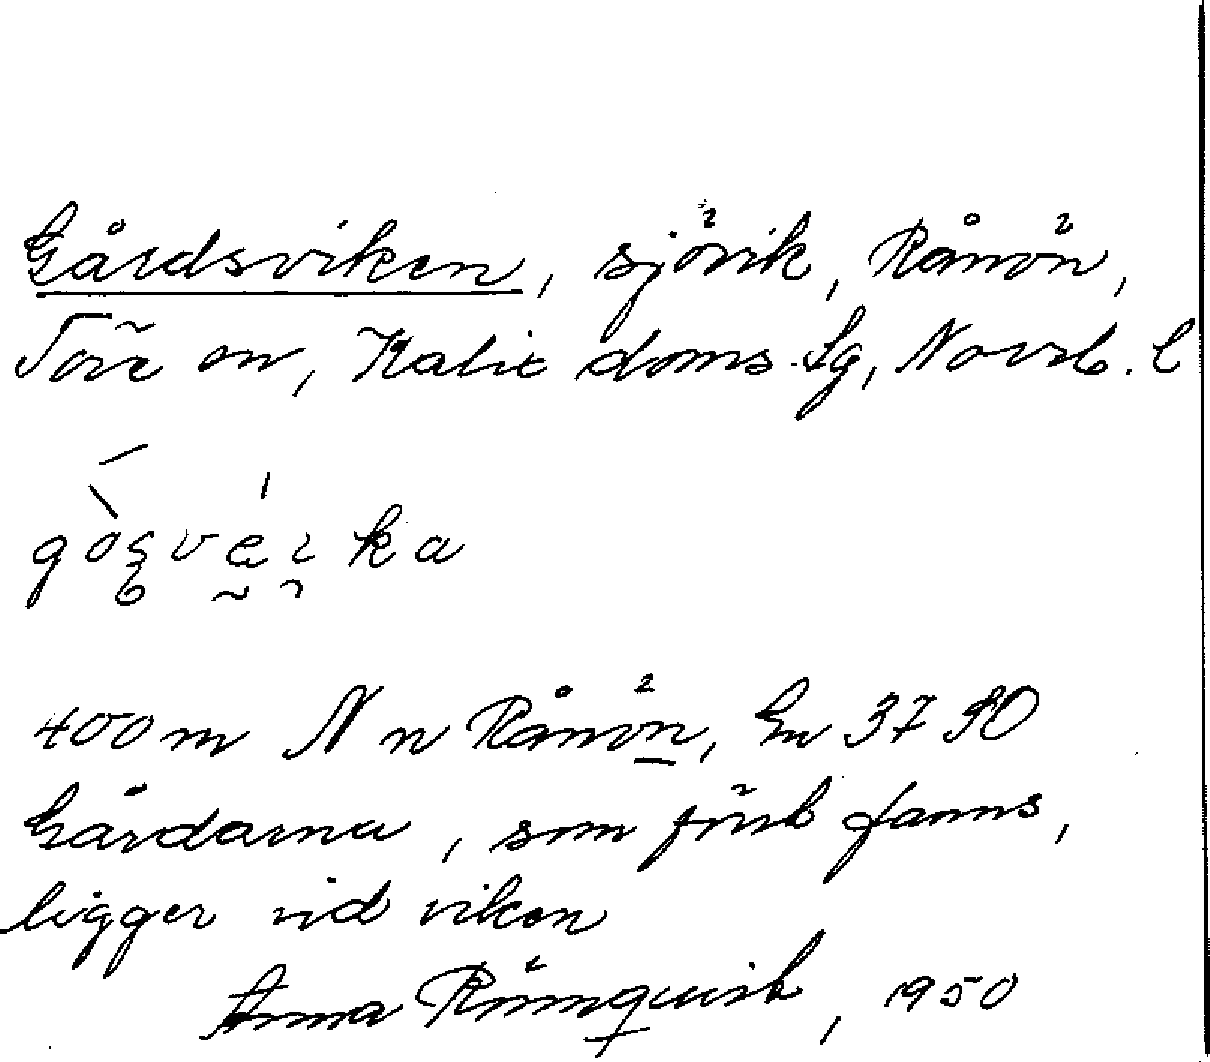 Gårdsviken, sjövik, Rånön,
Töre sn, Kalix doms.lg, Norrb. l
400 m N n Rånön, En 37 SO
Gårdarna, som först fanns,
ligger vid viken
Anna Rönnquist, 1950